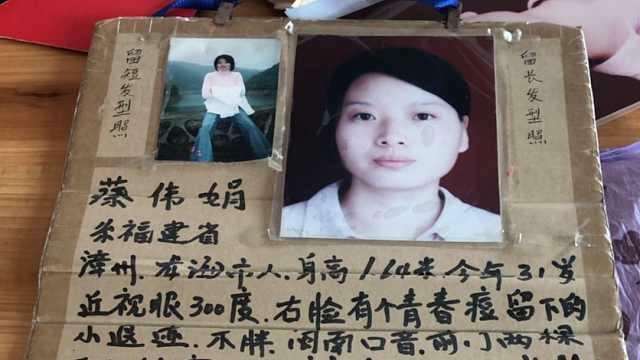 留短发型照
留长发型照
蔡伟娟
福建省
漳州.龙海市人.身高1.64米.今年31岁
近视眼300度.右脸有个青春痘留下的
小退迹.不胖.闽南口音.前.门两棵